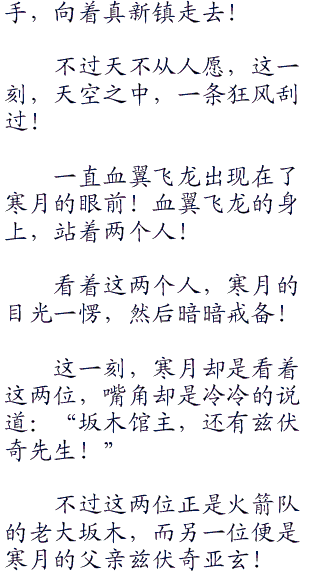 手，向着真新镇走去！
不过天不从人愿，这一
刻，天空之中，一条狂风刮
过！
一直血翼飞龙出现在了
寒月的眼前！血翼飞龙的身
上，站着两个人！
看着这两个人，寒月的
目光一愣，然后暗暗戒备！
这一刻，寒月却是看着
这两位，嘴角却是冷冷的说
道：“坂木馆主，还有兹伏
奇先生！”
不过这两位正是火箭队
的老大坂木，而另一位便是
寒月的父亲兹伏奇亚玄！